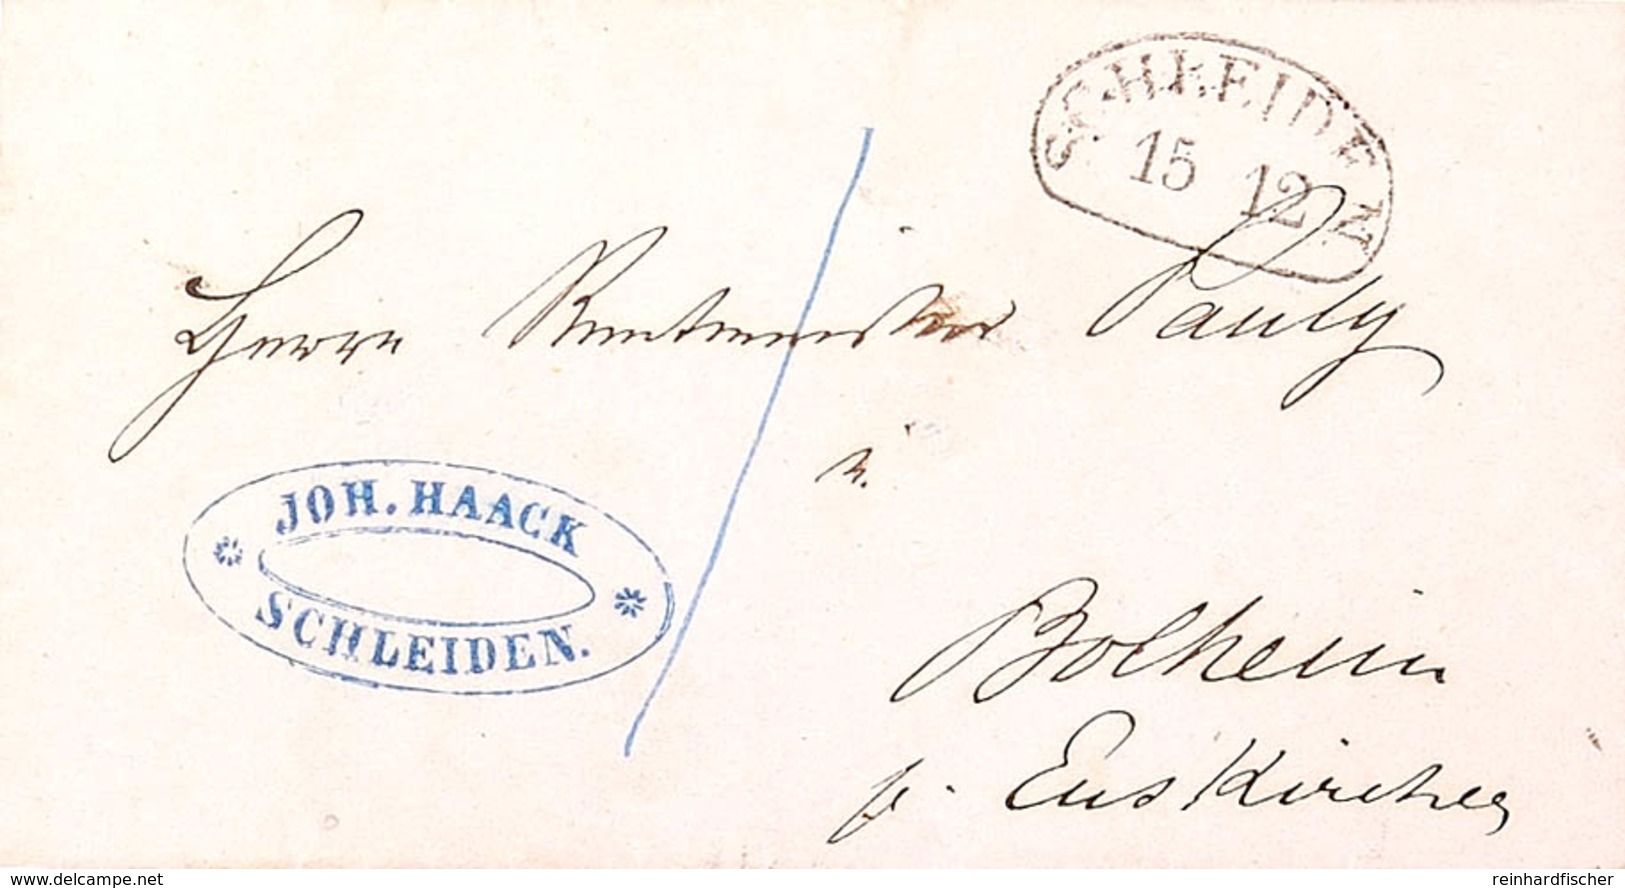 SCHLEIDEN
15 12
Herrn Rentmeister Pauly
JOH. HAACK
SCHLEIDEN.
Bolheim
p. Euskirchen
www.delcampe.net
reinhardfischer